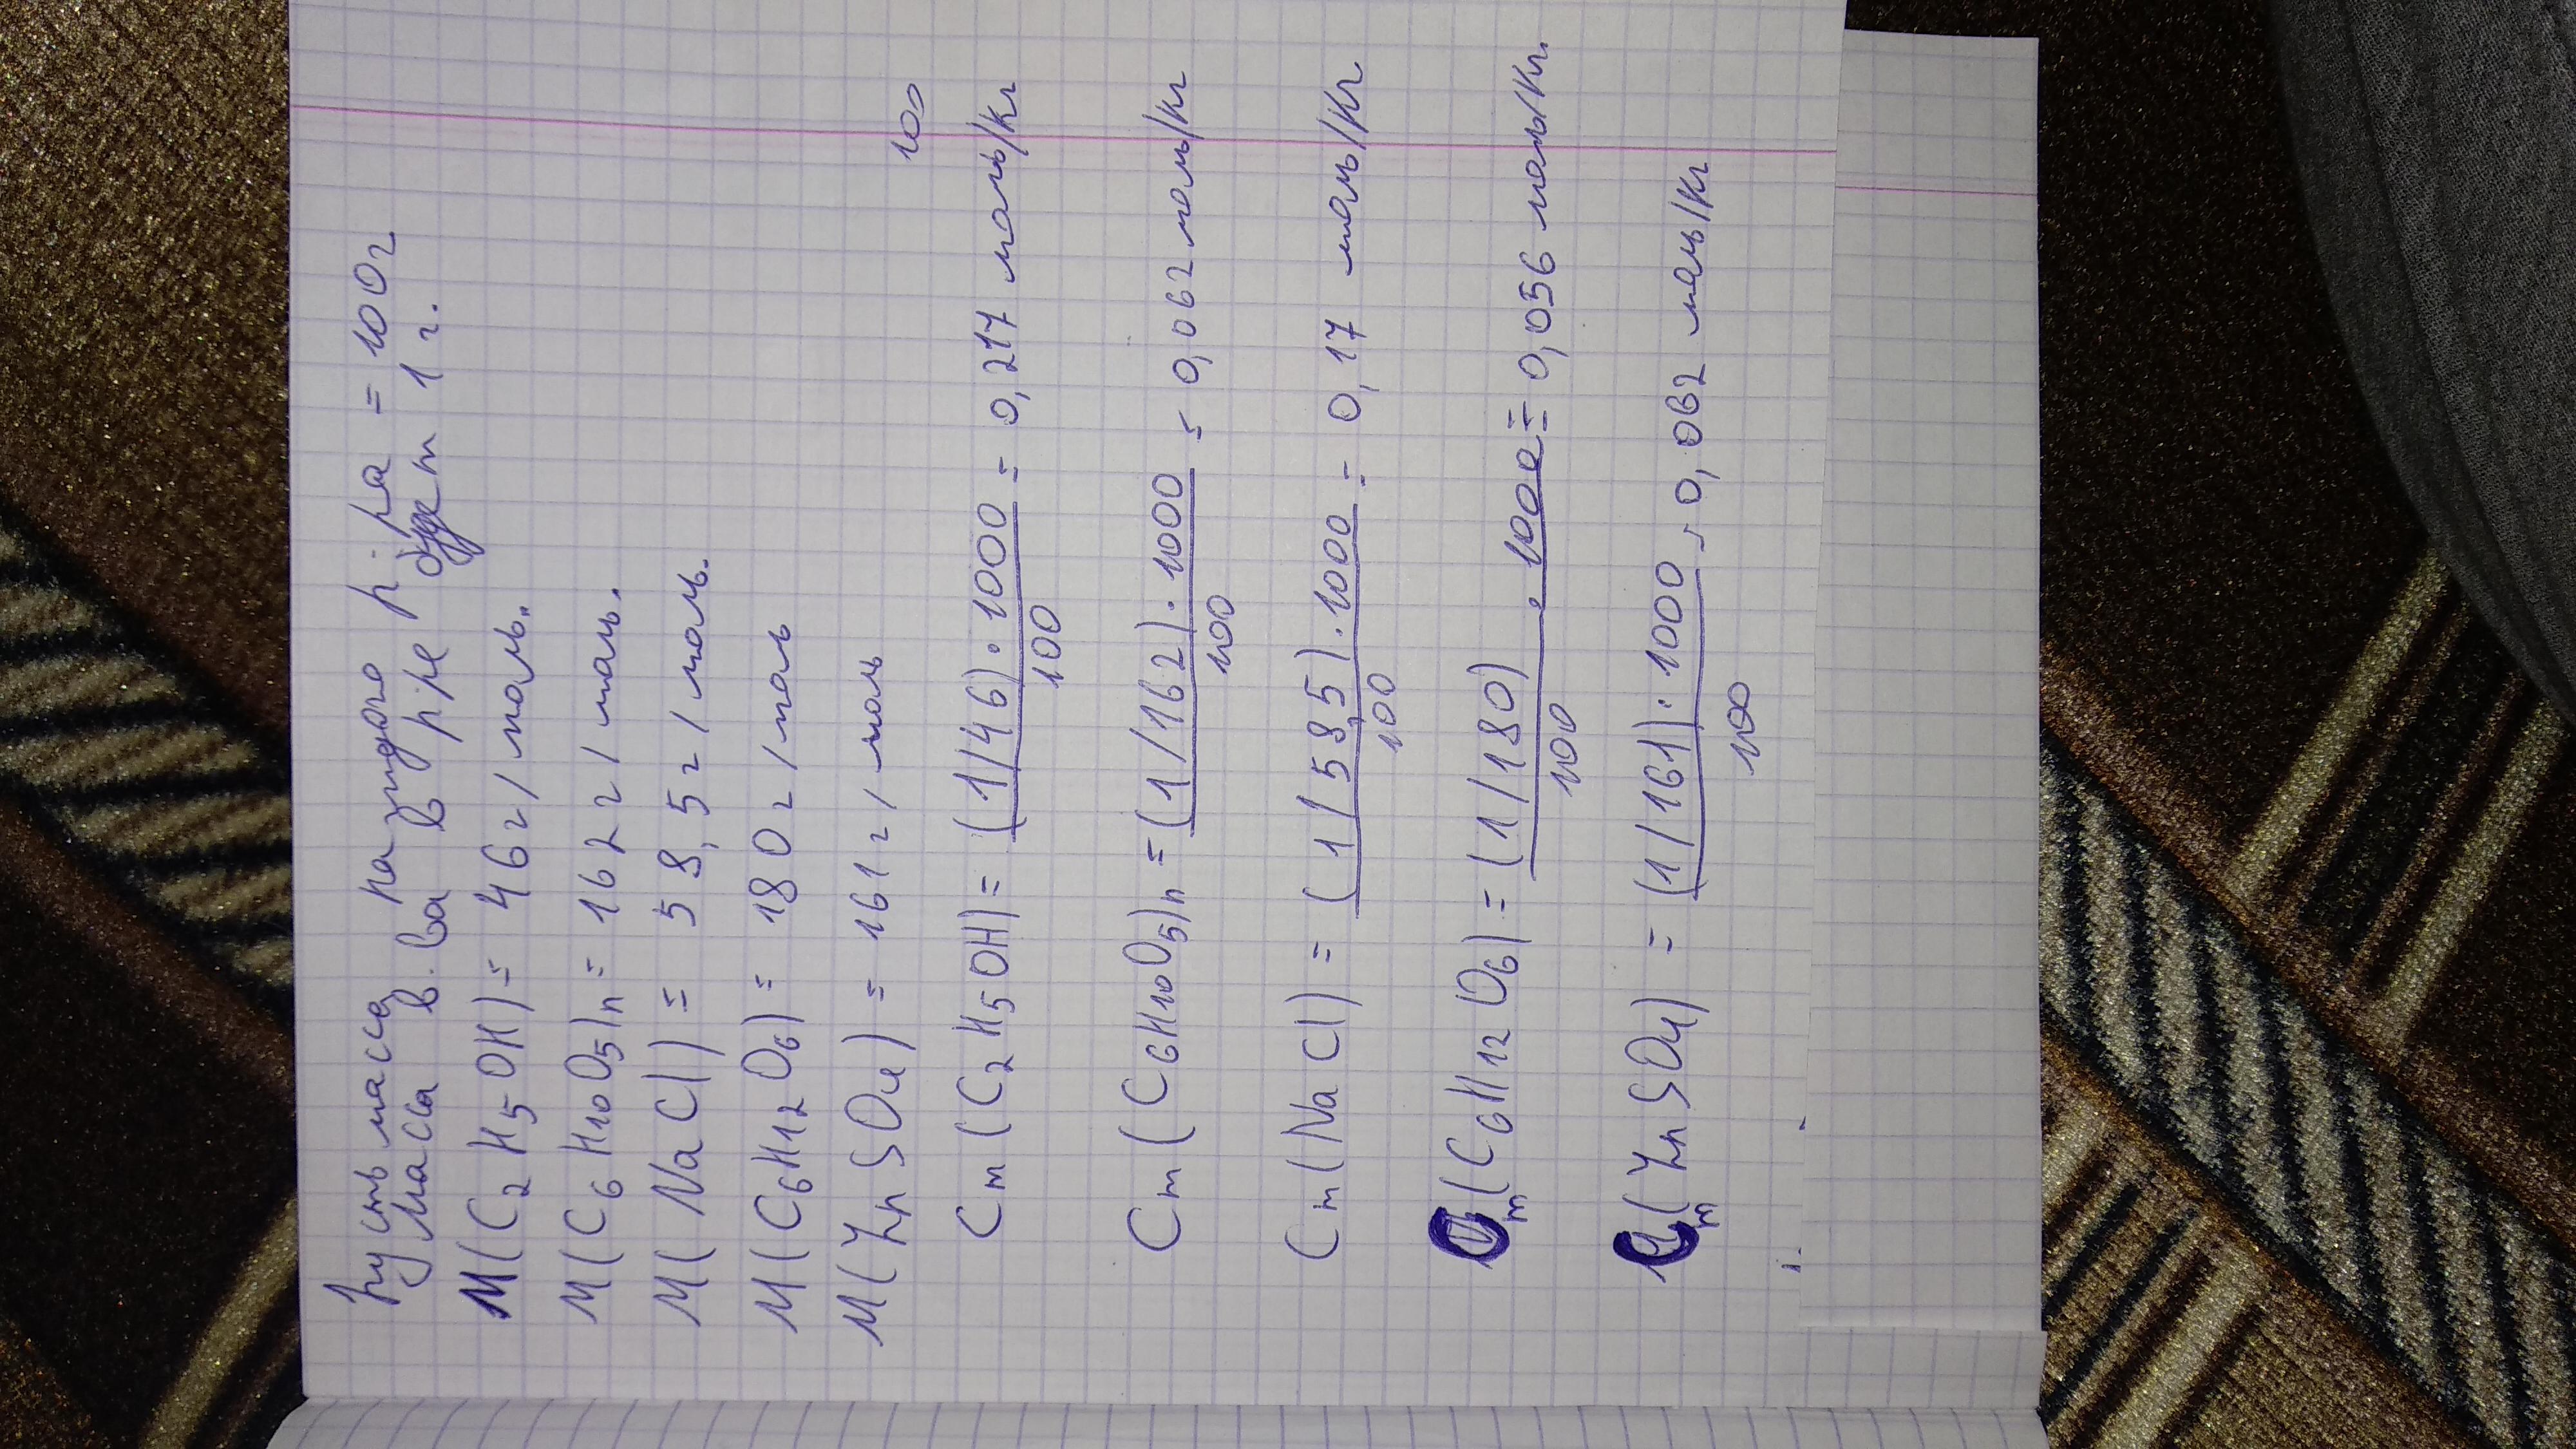 Пусть масса каждого р-ра = 100г
Масса в-ва в р-ре будет 1 г.
M(C2H5OH)= 46г/моль.
M(C6H10O5)n= 162г/моль.
M(NaCl)= 58,5г/моль.
M(C6H12O6)= 180г/моль
M(ZnSO4)= 161г/моль
100
Cm(C2H5OH)= (1/46)·1000 = 0,217 моль/кг
100
Cm(C6H10O5)n= (1/162)·1000 = 0,062 моль/кг
100
Cm(NaCl)= (1/58,5)·1000 = 0,17 моль/кг
100
Cm(C6H12O6)= (1/180)·1000= 0,056 моль/кг.
100
Cm(ZnSO4)= (1/161)·1000 = 0,062 моль/кг
100